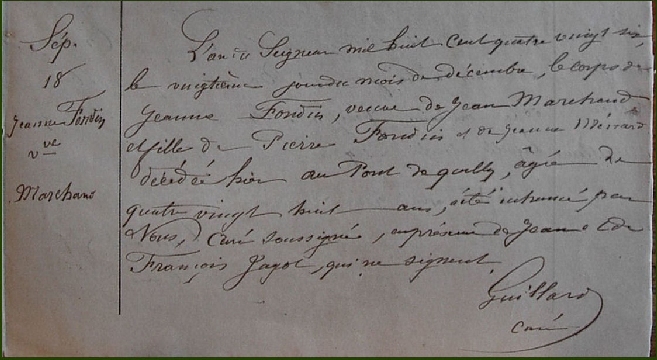 Sép.
18
Jeanne Fondin
vve
Marchand
L'an du Seigneur mil huit cent quatre vingt six,
le vingtième jour du mois de décembre, le corps de
Jeanne Fondin, veuve de Jean Marchand
et fille de Pierre Fondin et de Jeanne Ménard
décédé hier au Pont de quilly, âgée de
quatre vingt huit ans, a été inhumé par
Nous, Curé soussigné, en presence de Jeanne et de
François Jagot, qui ne signent
Guillard
curé